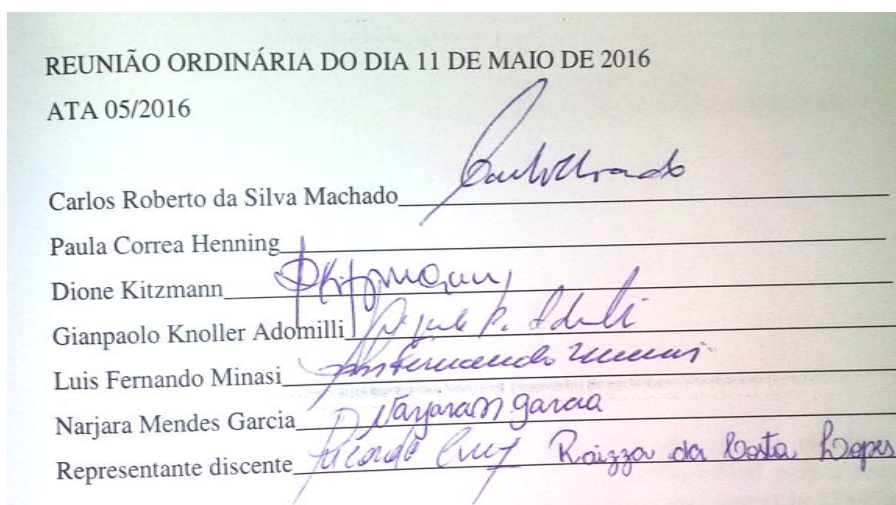 REUNIÃO ORDINÁRIA DO DIA 11 DE MAIO DE 2016
ATA 05/2016
Carlos Roberto da Silva Machado
Paula Correa Henning
Dione Kitzmann DKitzmann
Gianpaolo Knoller Adomilli
Luis Fernando Minasi
Narjara Mendes Garcia Narjara M Garcia
Representante discente Ricardo Cruz Raizza da Costa Lopes